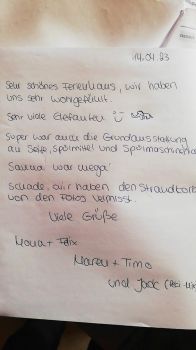 14.04.23
Sehr schönes Ferienhaus, wir haben
uns sehr wohlgefühlt.
Sehr viele Elefanten
Super war auch die Grundausstattung
an Seife, Spülmittel und Spülmaschinentabs
Sauna war mega!
Schade, wir haben den Strandkorb
von den Fotos vermisst.
Viele Grüße
Mona + Felix
Maren + Timo
und Jack